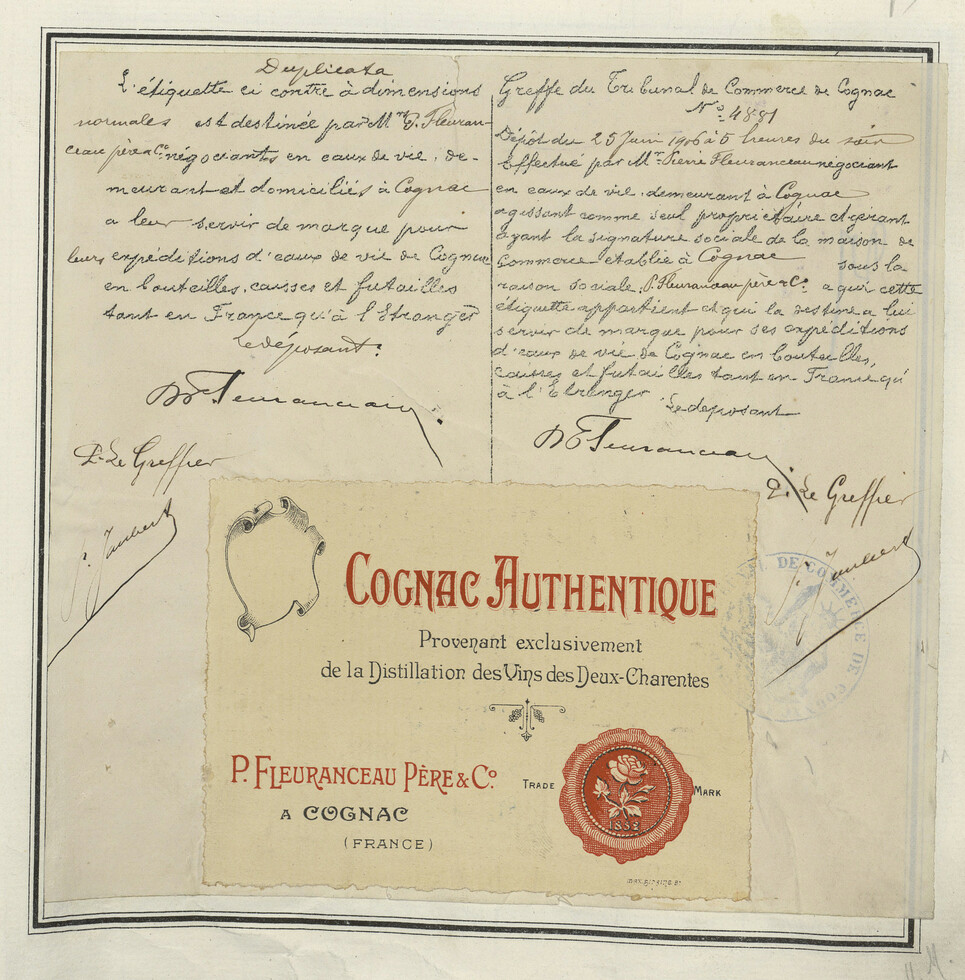 Duplicata
L'étiquette ci contre à dimensions
normales est destinée par Mrs P. Fleuran-
ceau père & Co négociants en eaux de vie, de-
meurant et domiciliés à Cognac
a leur servir de marque pour
leurs expéditions d'eaux de vie de Cognac
en bouteilles, caisses et futailles
tant en France qu'à l'Etranger
Le déposant.
P. Fleuranceau
P. Le Greffier
Greffe du Tribunal de Commerce de Cognac
No. 4881
Dépôt du 25 Juin 1906 à 5 heures du soir
Effectué par Mr. Pierre Fleuranceau négociant
en eaux de vie, demeurant à Cognac
agissant comme seul propriétaire et gérant
ayant la signature sociale de la maison de
Commerce établie à Cognac sous la
raison sociale, P. Fleuranceau père & Co. a qui cette
étiquette appartient et qui la destine a lui
servir de marque pour ses expéditions
d'eaux de vie de Cognac en bouteilles,
caisses et futailles tant en France qu'
à l'Etranger
Le deposant
P. Fleuranceau
P. Le Greffier
DE COMMERCE DE
COGNAC AUTHENTIQUE
Provenant exclusivement
de la Distillation des Vins des Deux-Charentes
P. FLEURANCEAU PÈRE & Co.
A COGNAC
(FRANCE)
TRADE
MARK